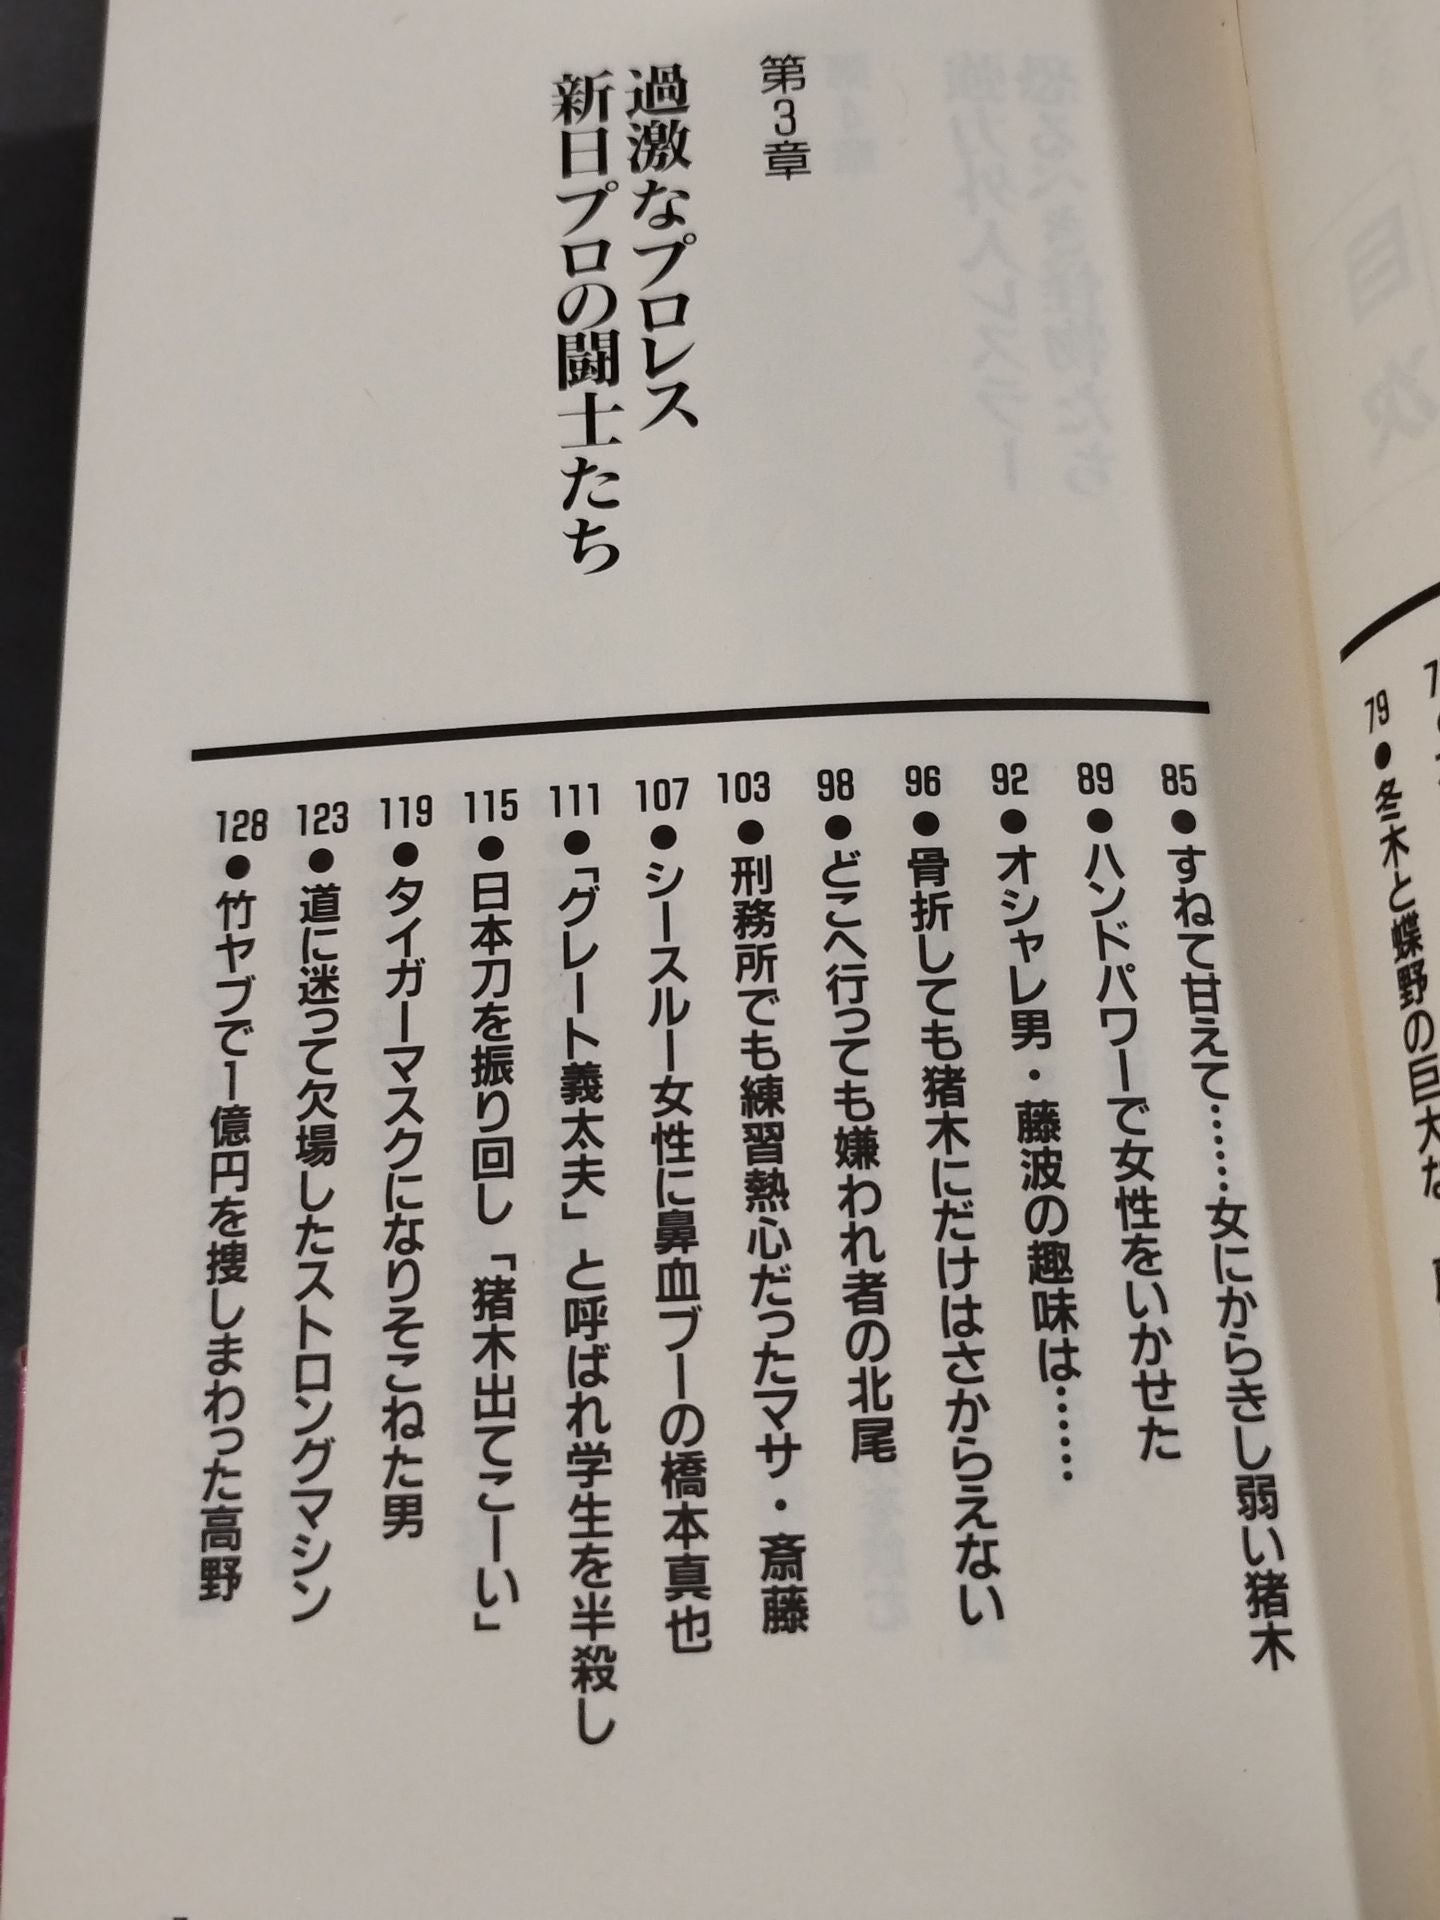 79●冬木と蝶野の巨大な
第3章
過激なプロレス
新日プロの闘士たち
85●すねて甘えて……女にからきし弱い猪木
89●ハンドパワーで女性をいかせた
92●オシャレ男・藤波の趣味は……
96●骨折しても猪木にだけはさからえない
98●どこへ行っても嫌われ者の北尾
103●刑務所でも練習熱心だったマサ・斎藤
107●シースルー女性に鼻血ブーの橋本真也
111●「グレート義太夫」と呼ばれ学生を半殺し
115●日本刀を振り回し「猪木出てこーい」
119●タイガーマスクになりそこねた男
123●道に迷って欠場したストロングマシン
128●竹ヤブで1億円を捜しまわった高野